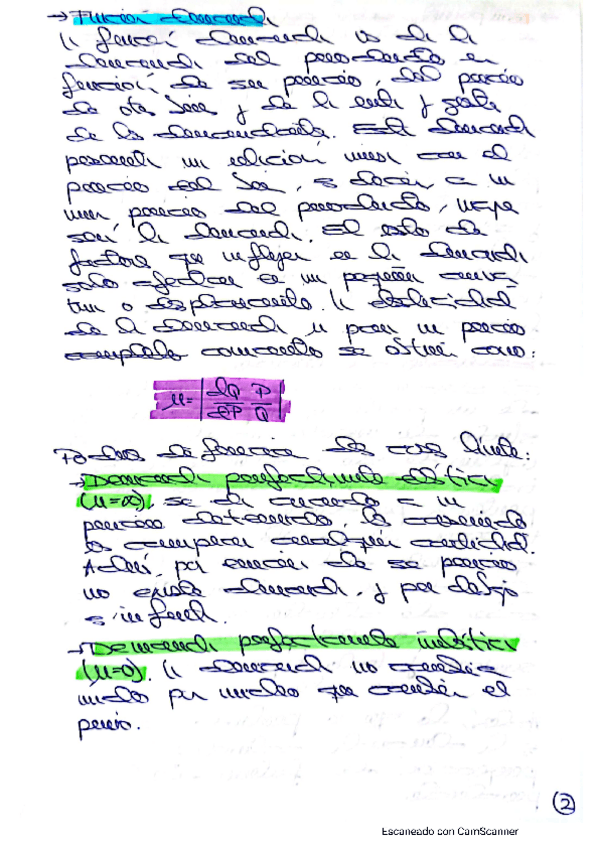 → Función demanda
La función demanda es de la
demanda del producto en
función de su precio, del precio
de otros bienes y de la renta y gustos
de los demandantes. Esta demanda
presenta una relación inversa con el
precio del bien, es decir a un
mayor precio del producto, mayor
será la demanda. El resto de
factores que influyen en la demanda
solo afectan en un pequeño
o desplazamiento. La elasticidad
de la demanda μ para un precio
completo concreto se obtiene como:
μ = | dQ/dP P/Q |
Podemos diferenciar dos casos límite:
→ Demanda perfectamente elástica
(μ=∞). se da cuando a un
precio determinado, los consumidores
compran cualquier cantidad.
Además, por encima de ese precio
no existe demanda, y por debajo
es infinita.
→ Demanda perfectamente inelástica
(μ=0). La demanda no cambia
por mucho que cambie el
precio.
2
Escaneado con CamScanner